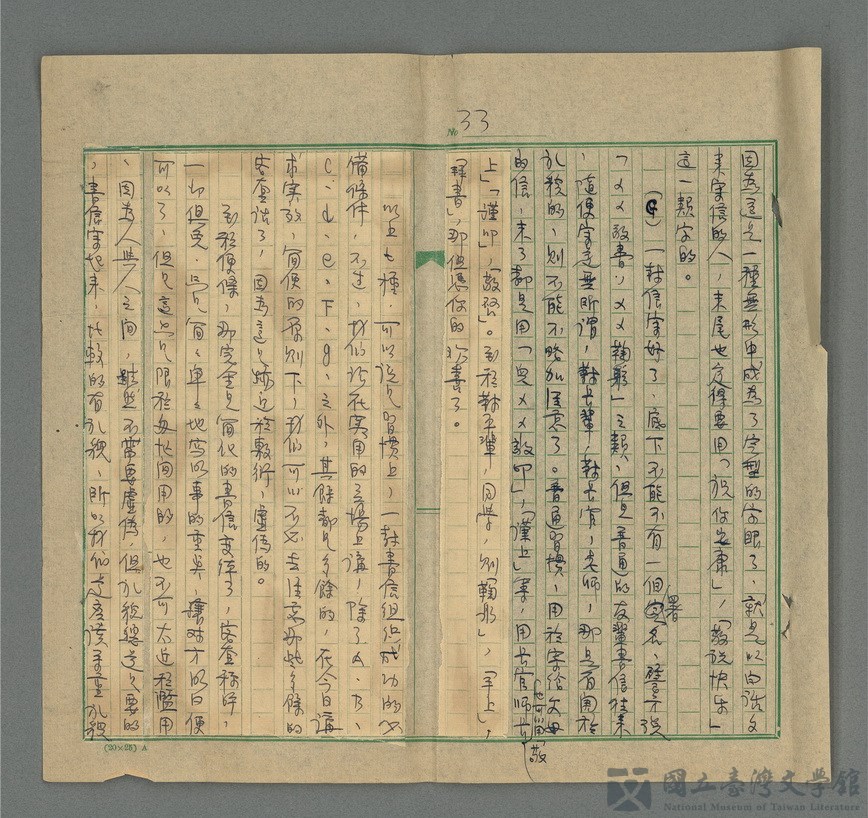 No 33
因為這是一種無形中成為了定型的字眼了、就是以白話文
來寫信的人，末尾也定得要用「祝你安康」，「敬祝快樂」
這一類字的。
(G) 一封信寫好了、底下不能不有一個署名，譬方說
「ㄨㄨ敬書」，ㄨㄨ鞠躬」之類、但是普通的友輩書信往來
，隨便寫是無所謂，對長輩，對長官，老師，那是有關於
禮貌的，則不能不略加注意了。普通習慣，用於寫給父母
的信，末了都是用「兒ㄨㄨ敬叩」，「謹上」等，用長官師
也可用「敬
上」「謹叩」，「敬啓」。至於對平輩，同學，則「鞠躬」，「手上」，
「拜書」，那但憑你的歡喜了。
以上七種，可以說是習慣上，一封書信組織成功的必
備條件，不過，我們站在實用的立場上講，除了A、B、
C、d、e、f、g、之外，其餘都是多餘的，在今日講
求實效，簡便的原則下，我們可以不必去注意那些多餘的
客套話了，因為這是跡近於敷衍，虛偽的。
至於便條，那完全是簡化的書信變体了，客套稱呼，
一切但免，只是簡簡單單地寫以事的重點，讓對方明白便
可以了，但是這只是限於彼此間用的，也不可太近於濫用
、因為人與人之間，雖然不需要虛偽，但禮貌總是必要的
，書信寫起來，比較的有禮貌，所以我們這應該著重禮貌
(20×25) A
國立臺灣文學館
National Museum of Taiwan Literature